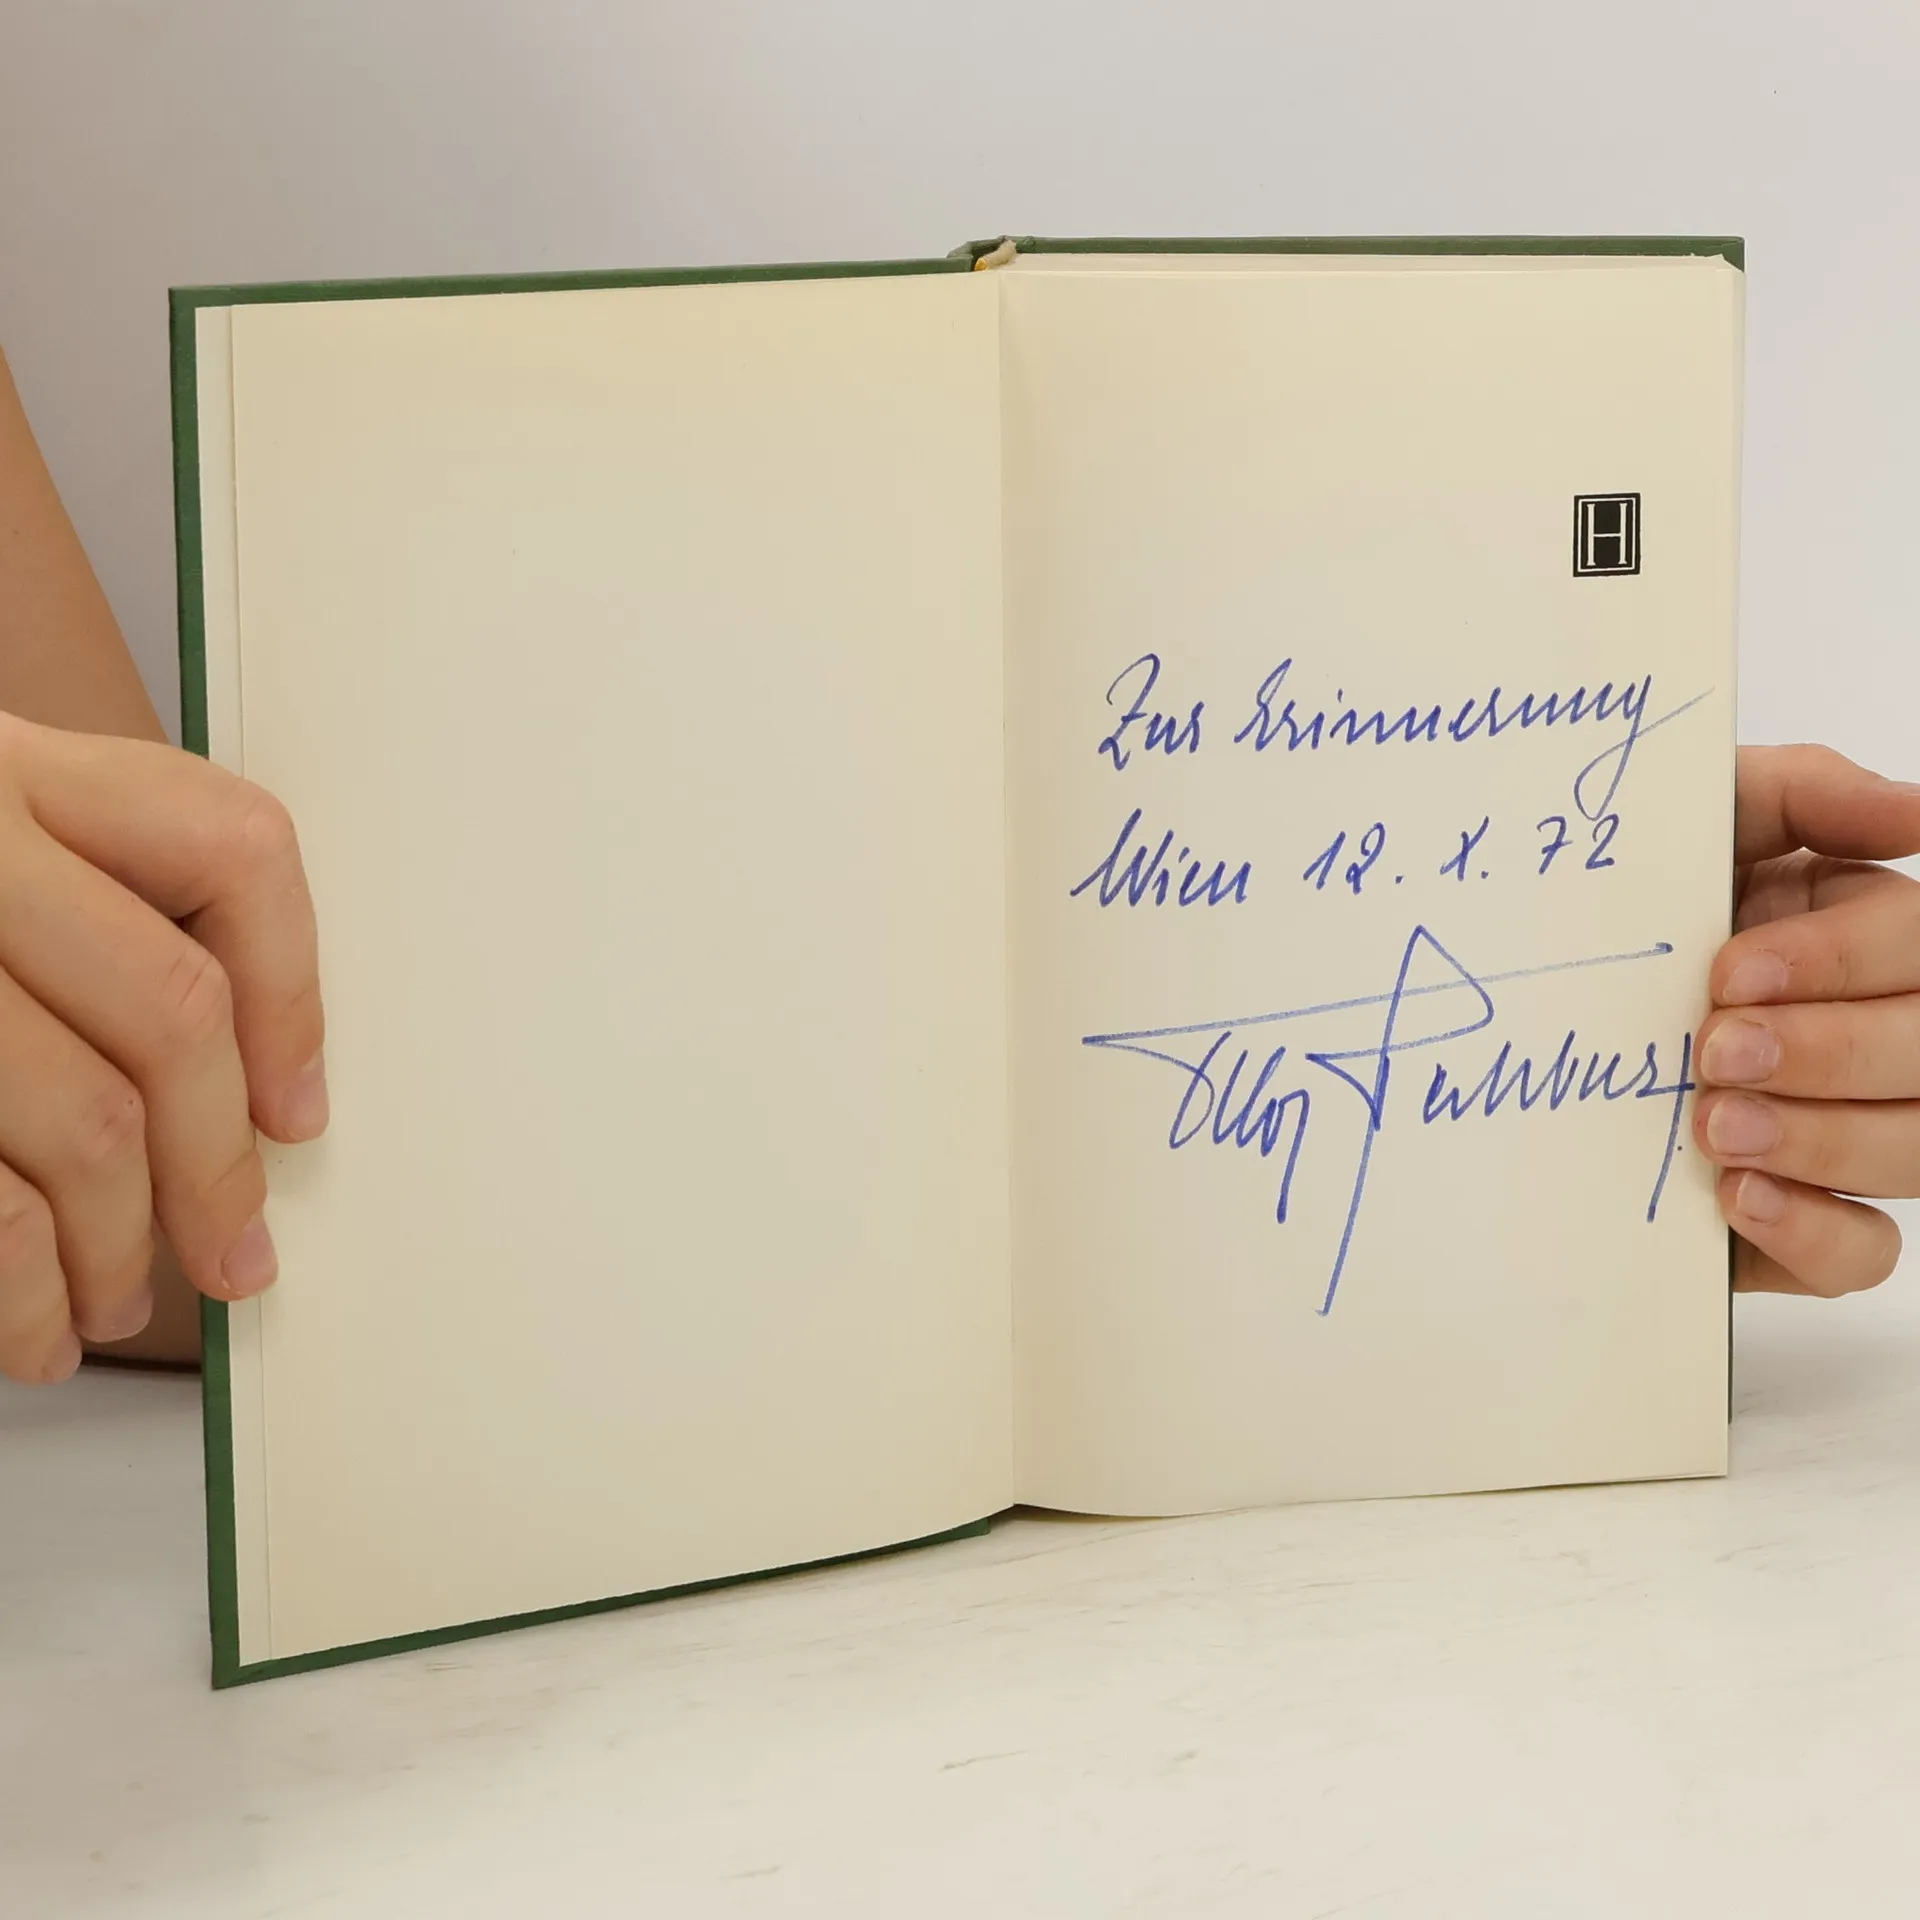 H
Zur Erinnerung
Wien 12. X. 72